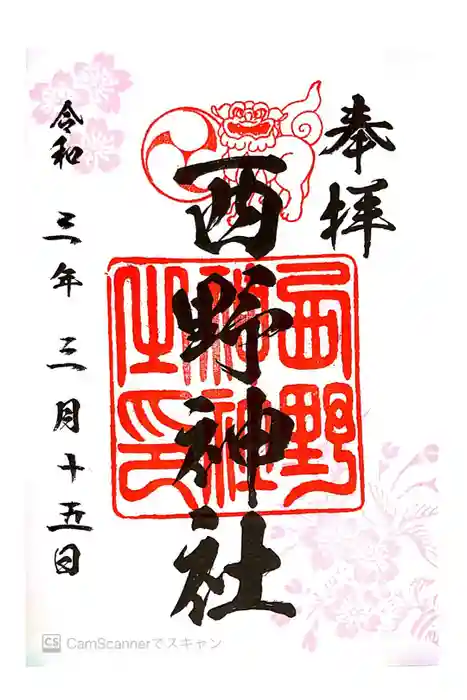 奉拝
西野神社
西野神社之印
令和 三年 三月十五日
CS CamScannerでスキャン